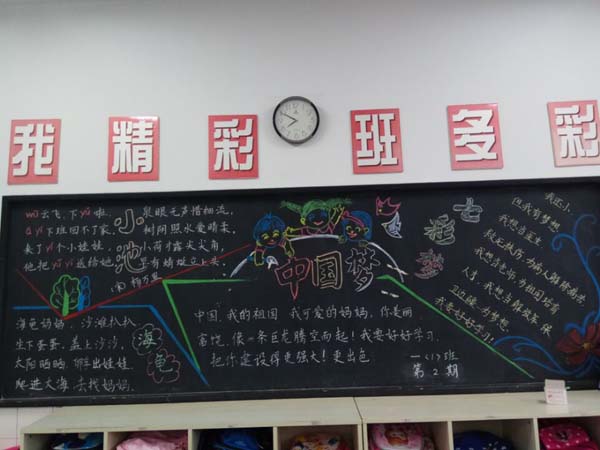 我精彩 班多彩
wū云飞,下yǔ啦,
ā yí下班回不了家,
来了yí个小娃娃,
他把yǔ yī送给她
小池
泉眼无声惜细流,
树阴照水爱晴柔。
小荷才露尖尖角,
早有蜻蜓立上头。
(宋)杨万里
海龟
海龟妈妈,沙滩扒扒
生下蛋蛋,盖上沙沙,
太阳晒晒,孵出娃娃
爬进大海,去找妈妈。
中国梦
中国,我的祖国,我可爱的妈妈,你美丽,
富饶,像一条巨龙腾空而起!我要好好学习,
把你建设得更强大!更出色
一(1)班
第2期
七彩梦
我还小,
但我有梦想
我想当医生
救死扶伤,为病人解除病苦
我想当老师,为祖国培育
人才,我想当解放军,保
卫边疆,为梦想,
我要好好学习!